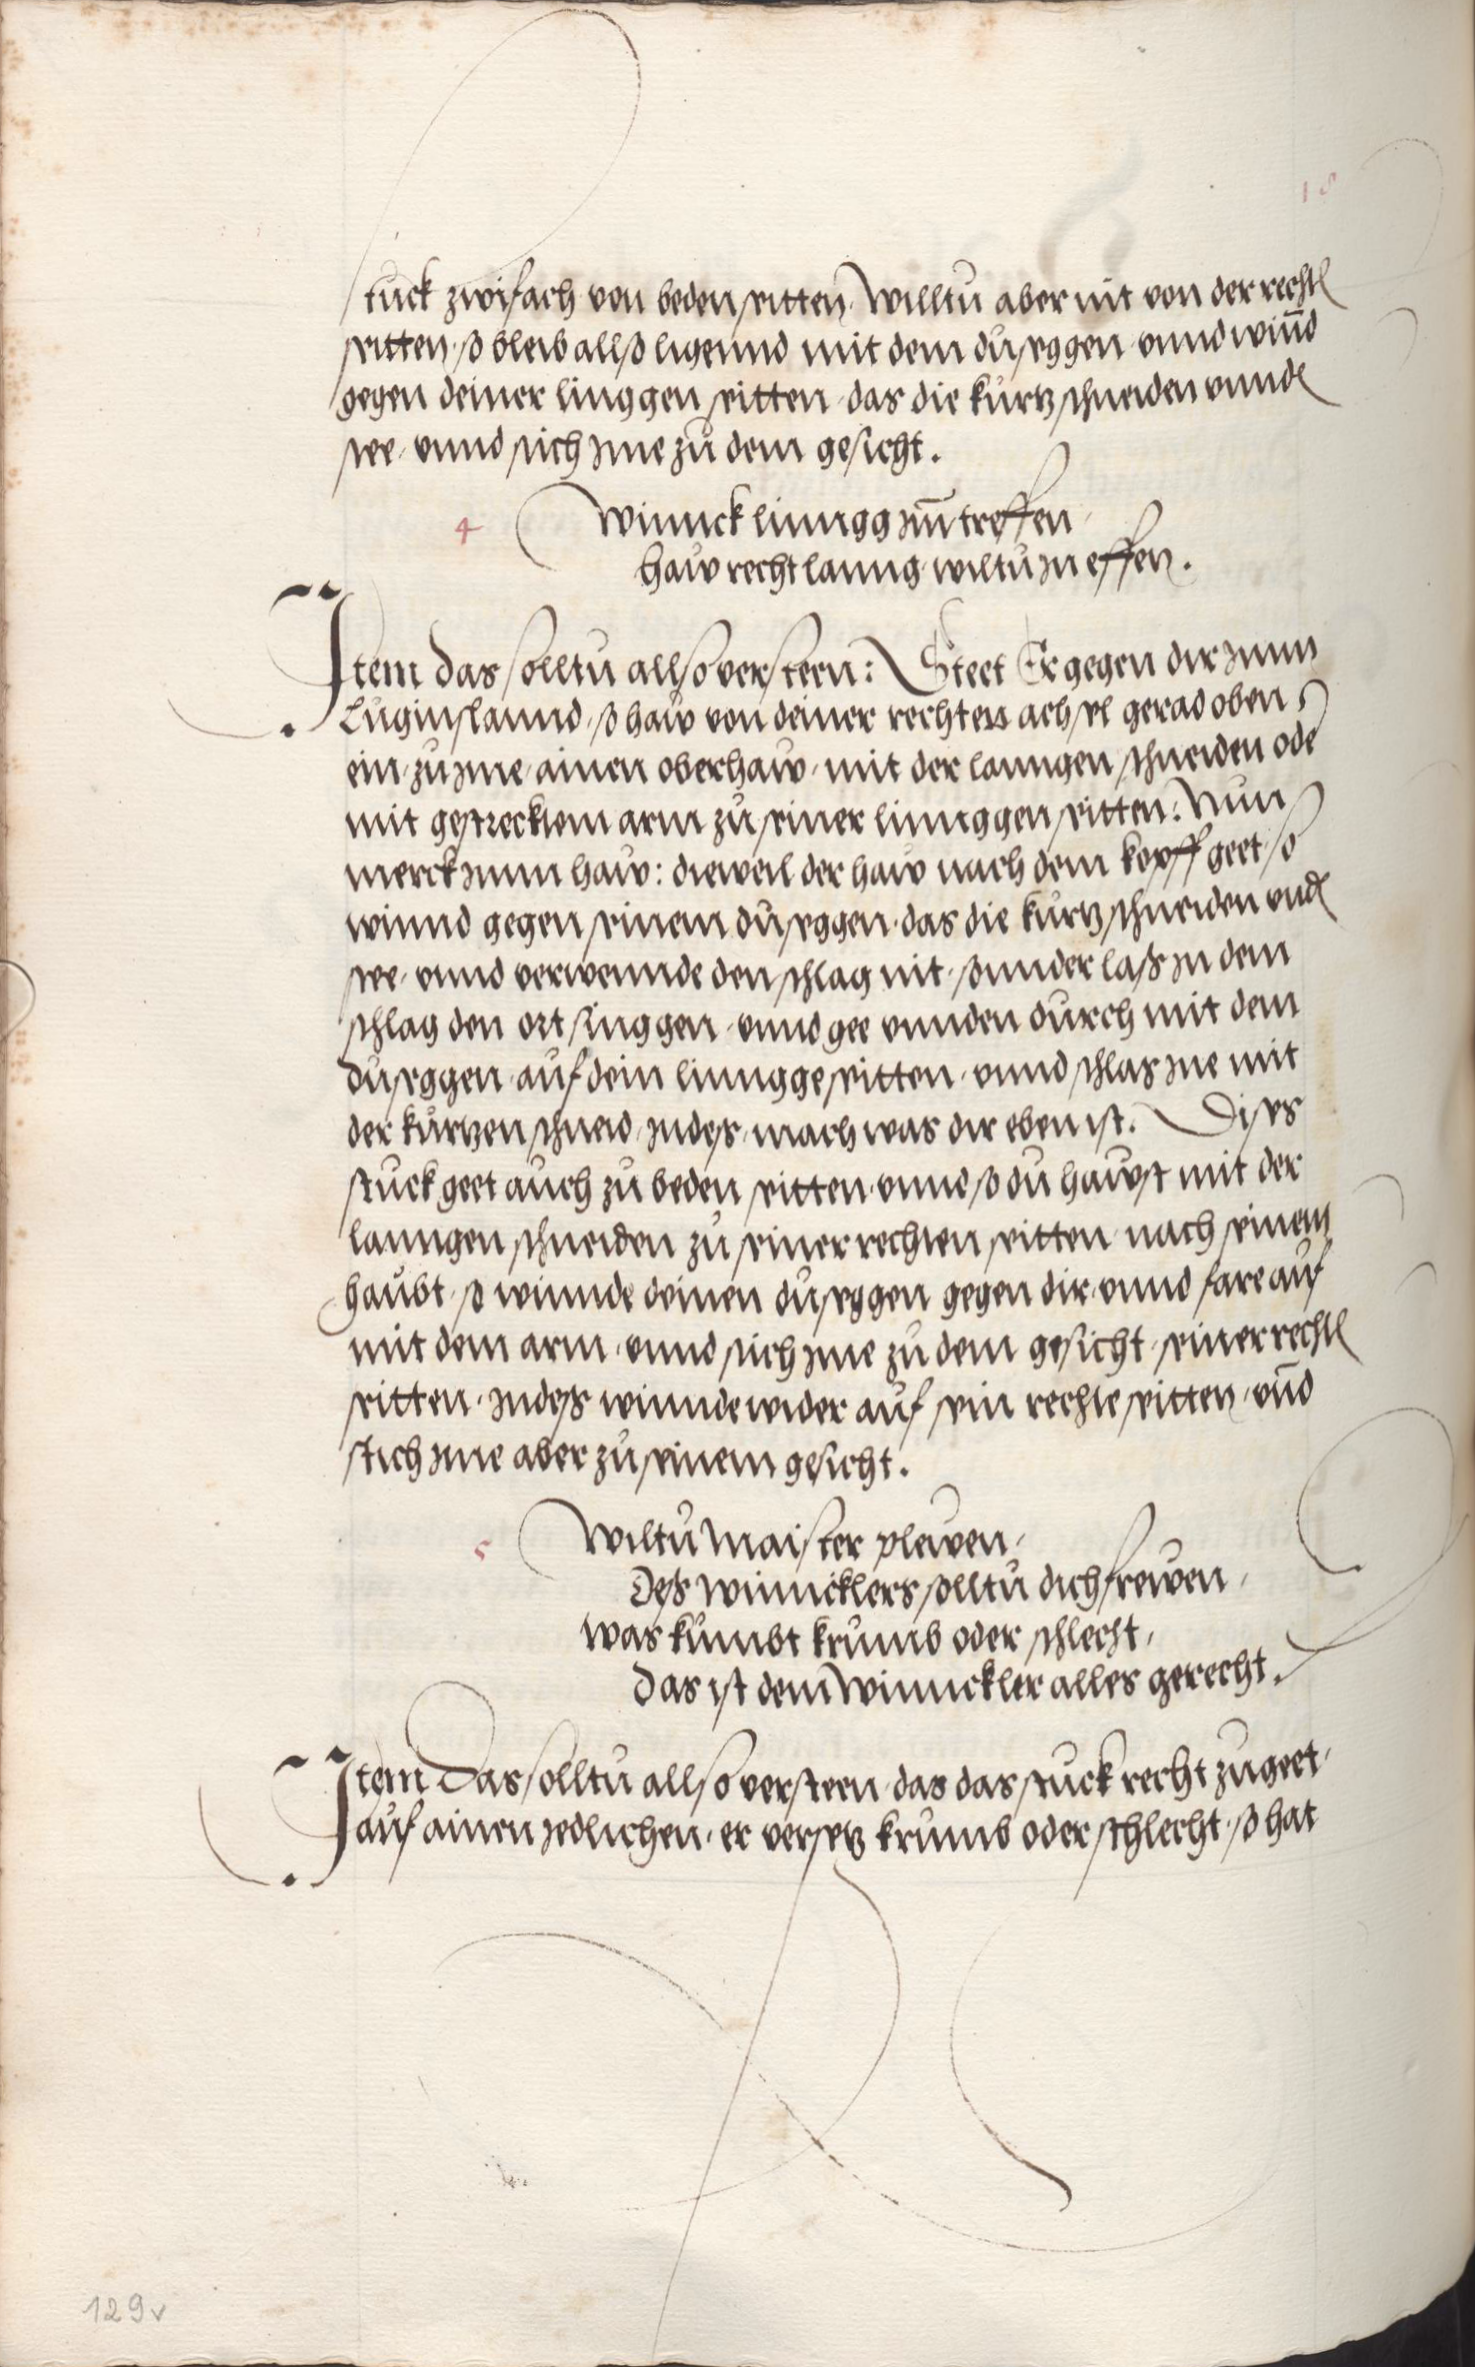 stuck zwifach von beden seitten. Willtu aber nit von der rechtn
seitten, so bleib allso ligennd mit dem duseggen, vnnd winnd
gegen deiner linggen seitten, das die kurtz schneiden vnnden
see, vnnd stich jme zu dem gesicht.
4 Winnck linngg jnn treffen,
haw recht lanng, wiltu jn effen.
Item das solltu allso versteen: Steet Er gegen dir jnnn
Luginslannd, so haw von deiner rechten achsel gerad oben
ein, zu jme, ainen oberhaw, mit der lanngen schneiden ode
mit gestrecktem arm zu seiner linnggen seitten: Nun
merck jnnn haw: dieweil der haw nach dem kopff geet, so
winnd gegen seinem duseggen, das die kurtz schneiden vnden
see, vnnd verwennde den schlag nit, sonnder lass jn dem
schlag den ort sinnggen, vnnd gee vnnden durch mit dem
duseggen, auf dein linngge seitten, vnnd schlag jne mit
der kurtzen schneid, jndess, mach was dir eben ist. Dises
stuck geet auch zu beden seitten, vnnd so du hawst mit der
lanngen schneiden zu seiner rechten seitten nach seinem
haubt, so winnde deinen dusеggen gegen dir, vnnd fare auf
mit dem arm, vnnd stich jme zu dem gesicht, seiner rechtn
seitten, jndess winnde wider auf sein rechte seitten, vnd
stich jme aber zu seinem gesicht.
5 Wiltu Maister plewen,
Dess winncklers solltu dich frewen,
was kumbt krumb oder schlecht,
Das ist dem Winnckler alles gerecht.
Item Das solltu allso versteen, das das stuck recht zugeet,
auf ainen jedlichen, er versetz krumb oder schlecht, so hat
129v